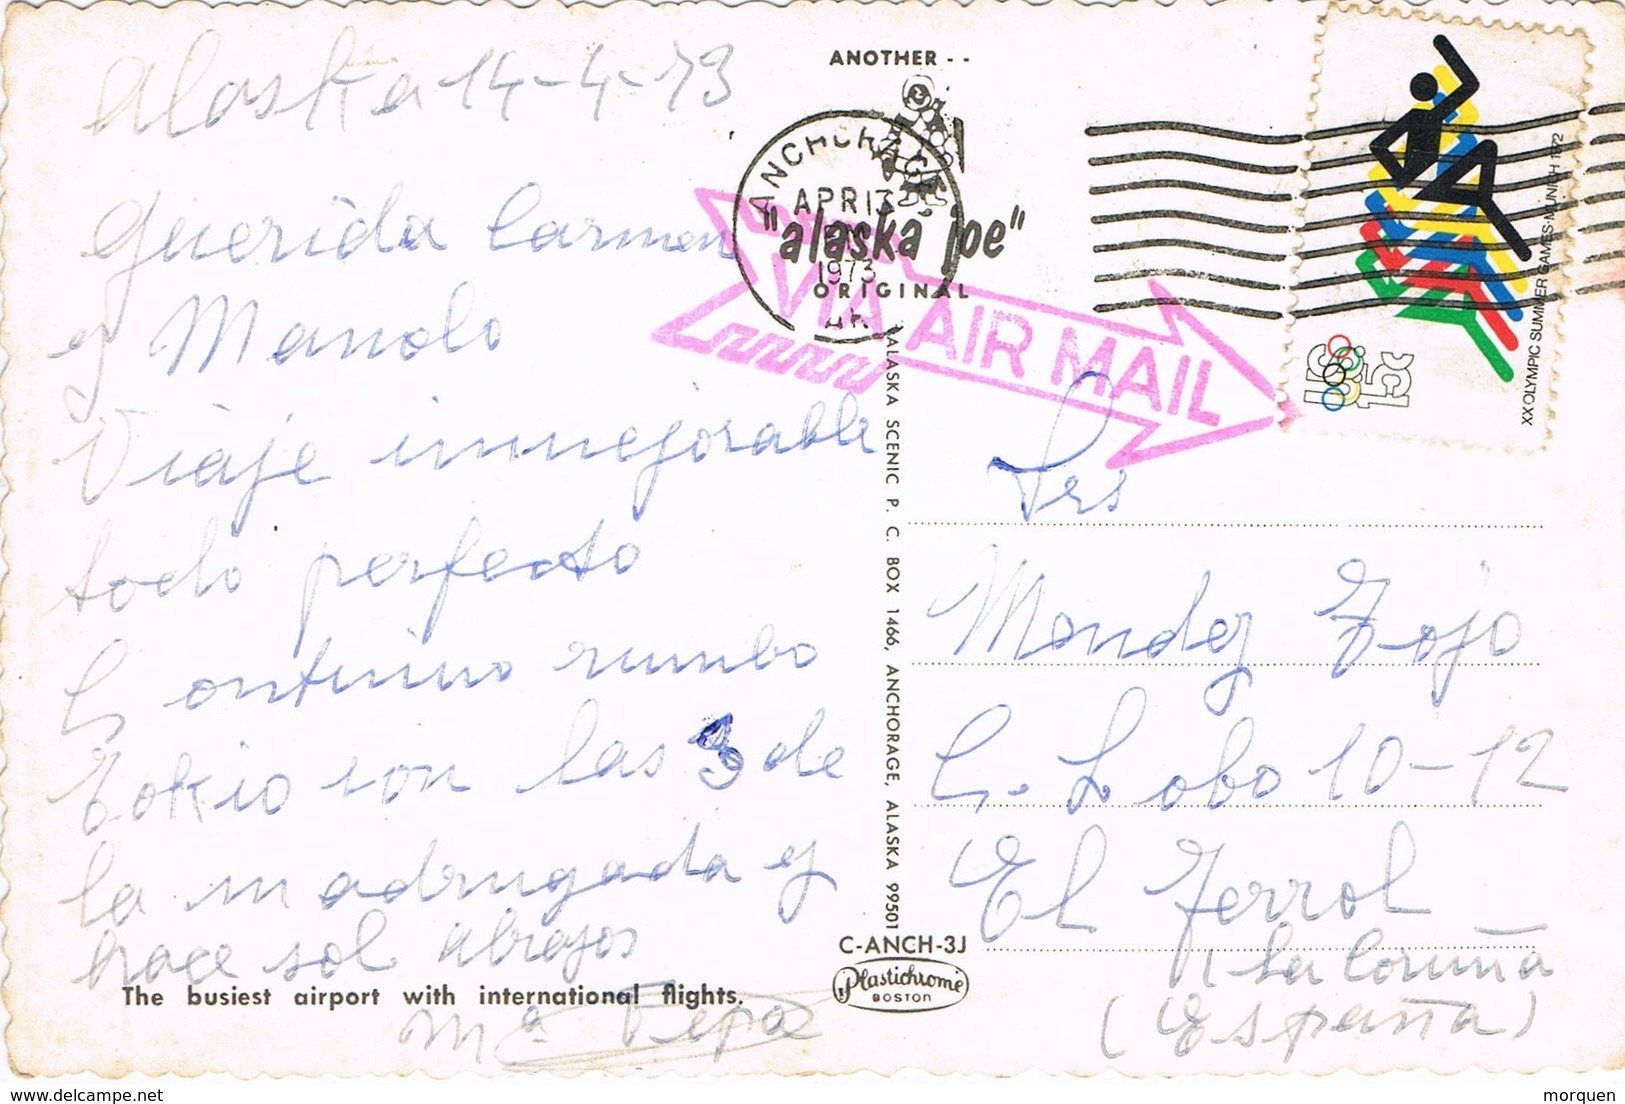 Alaska 14-4-73
Querida Carmen
y Manolo
Viaje inmejorable
todo perfecto
Continuo rumbo
Tokio son las 3 de
la madrugada y
hace sol abrazos
Mª Pepa
The busiest airport with international flights.
ANOTHER - -
"alaska joe"
ORIGINAL
ANCHORAGE
APR 13
1973
AK
VIA AIR MAIL
ALASKA SCENIC P. C. BOX 1466, ANCHORAGE, ALASKA 99501
C-ANCH-3J
Plastichrome
BOSTON
US 15c
XX OLYMPIC SUMMER GAMES·MUNICH 1972
Srs
Mendez Tojo
C. Lobo 10-12
El Ferrol
La Coruña
(España)
delcampe.net
morquen